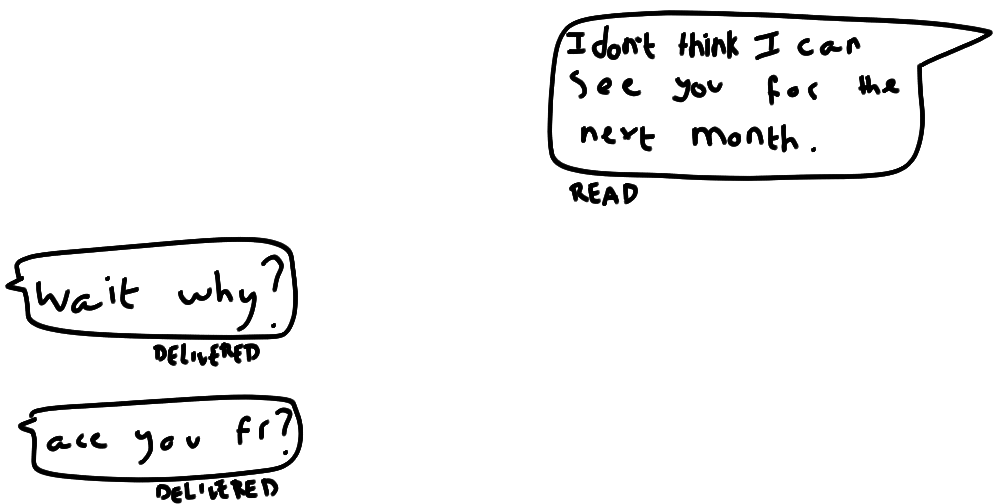 I don't think I can
see you for the
next month.
READ
Wait why?
DELIVERED
are you fr?
DELIVERED